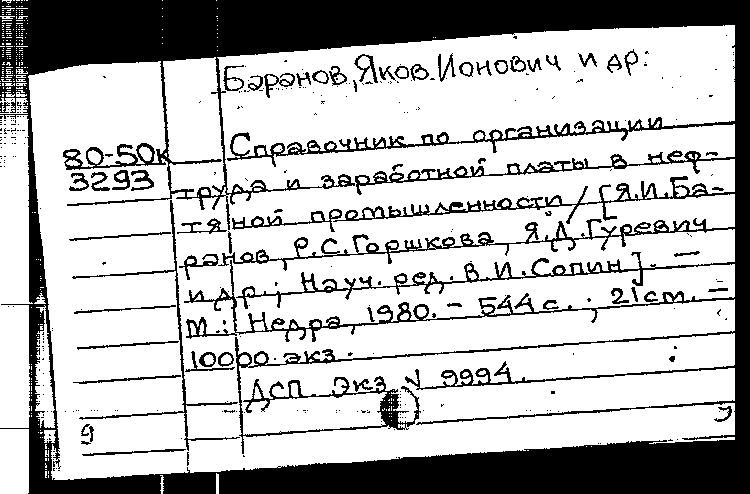 Баранов, Яков Ионович и др.
80-50к
3293
Справочник по организации
труда и заработной платы в неф-
тяной промышленности / [Я.И.Ба-
ранов, Р.С.Горшкова, Я.Д.Гуревич
и др.; Науч. ред. В.И.Сопин]. —
М.: Недра, 1980. - 544 с. ; 21 см. —
10000 экз.
ДСП. Экз № 9994.
9